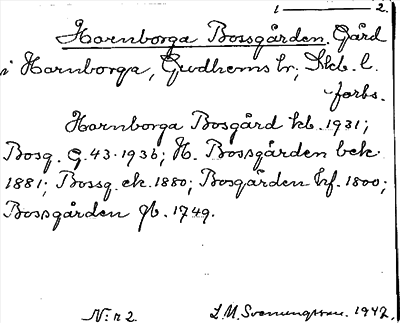 1 ——— 2.
Hornborga Bossgården. Gård
i Hornborga, Gudhems hr, Skb. l.
forts.
Hornborga Bosgård kb. 1931;
Bosg. G. 43. 1936; H. Bossgården bek.
1881; Bossg. ek. 1880; Bosgården hf. 1800;
Bossgården gb. 1749.
N:r 2. L.M. Svanungsson. 1942.